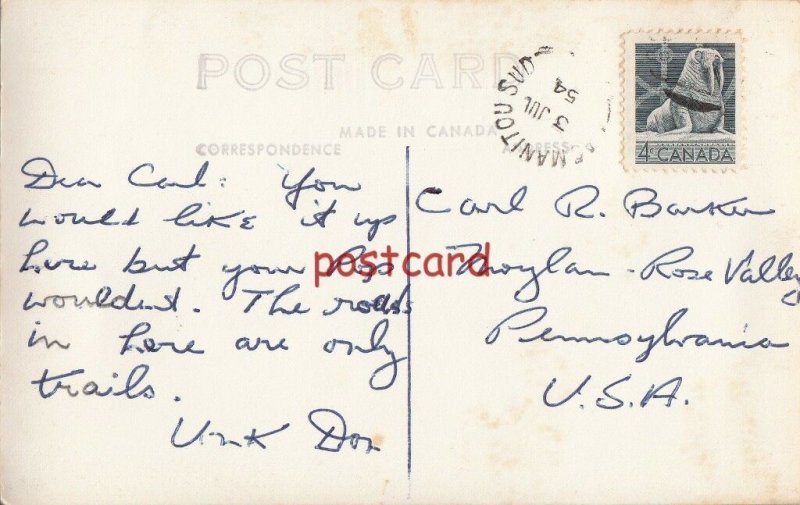 POST CARD
MADE IN CANADA
CORRESPONDENCE
MANITOU
3 JUL
54
4c CANADA
Dear Carl: You
would like it up
here but your Pop
wouldent. The roads
in here are only
trails.
Unk Don
Carl R. Barker
Moylan - Rose Valley
Pennsylvania
U.S.A.
postcard